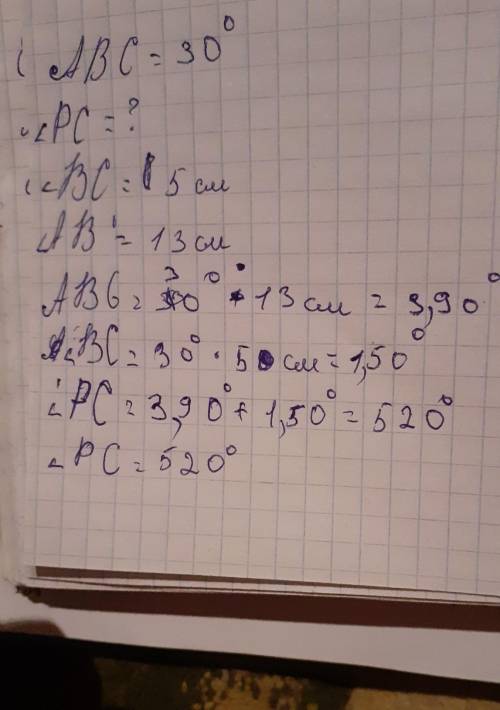 ∠ ABC = 30°
∠PC = ?
∠BC = 5 см
AB = 13 см
ABC = 30° · 13 см = 3,90°
∠BC = 30° · 5 см = 1,50°
∠PC = 3,90° + 1,50° = 520°
∠PC = 520°